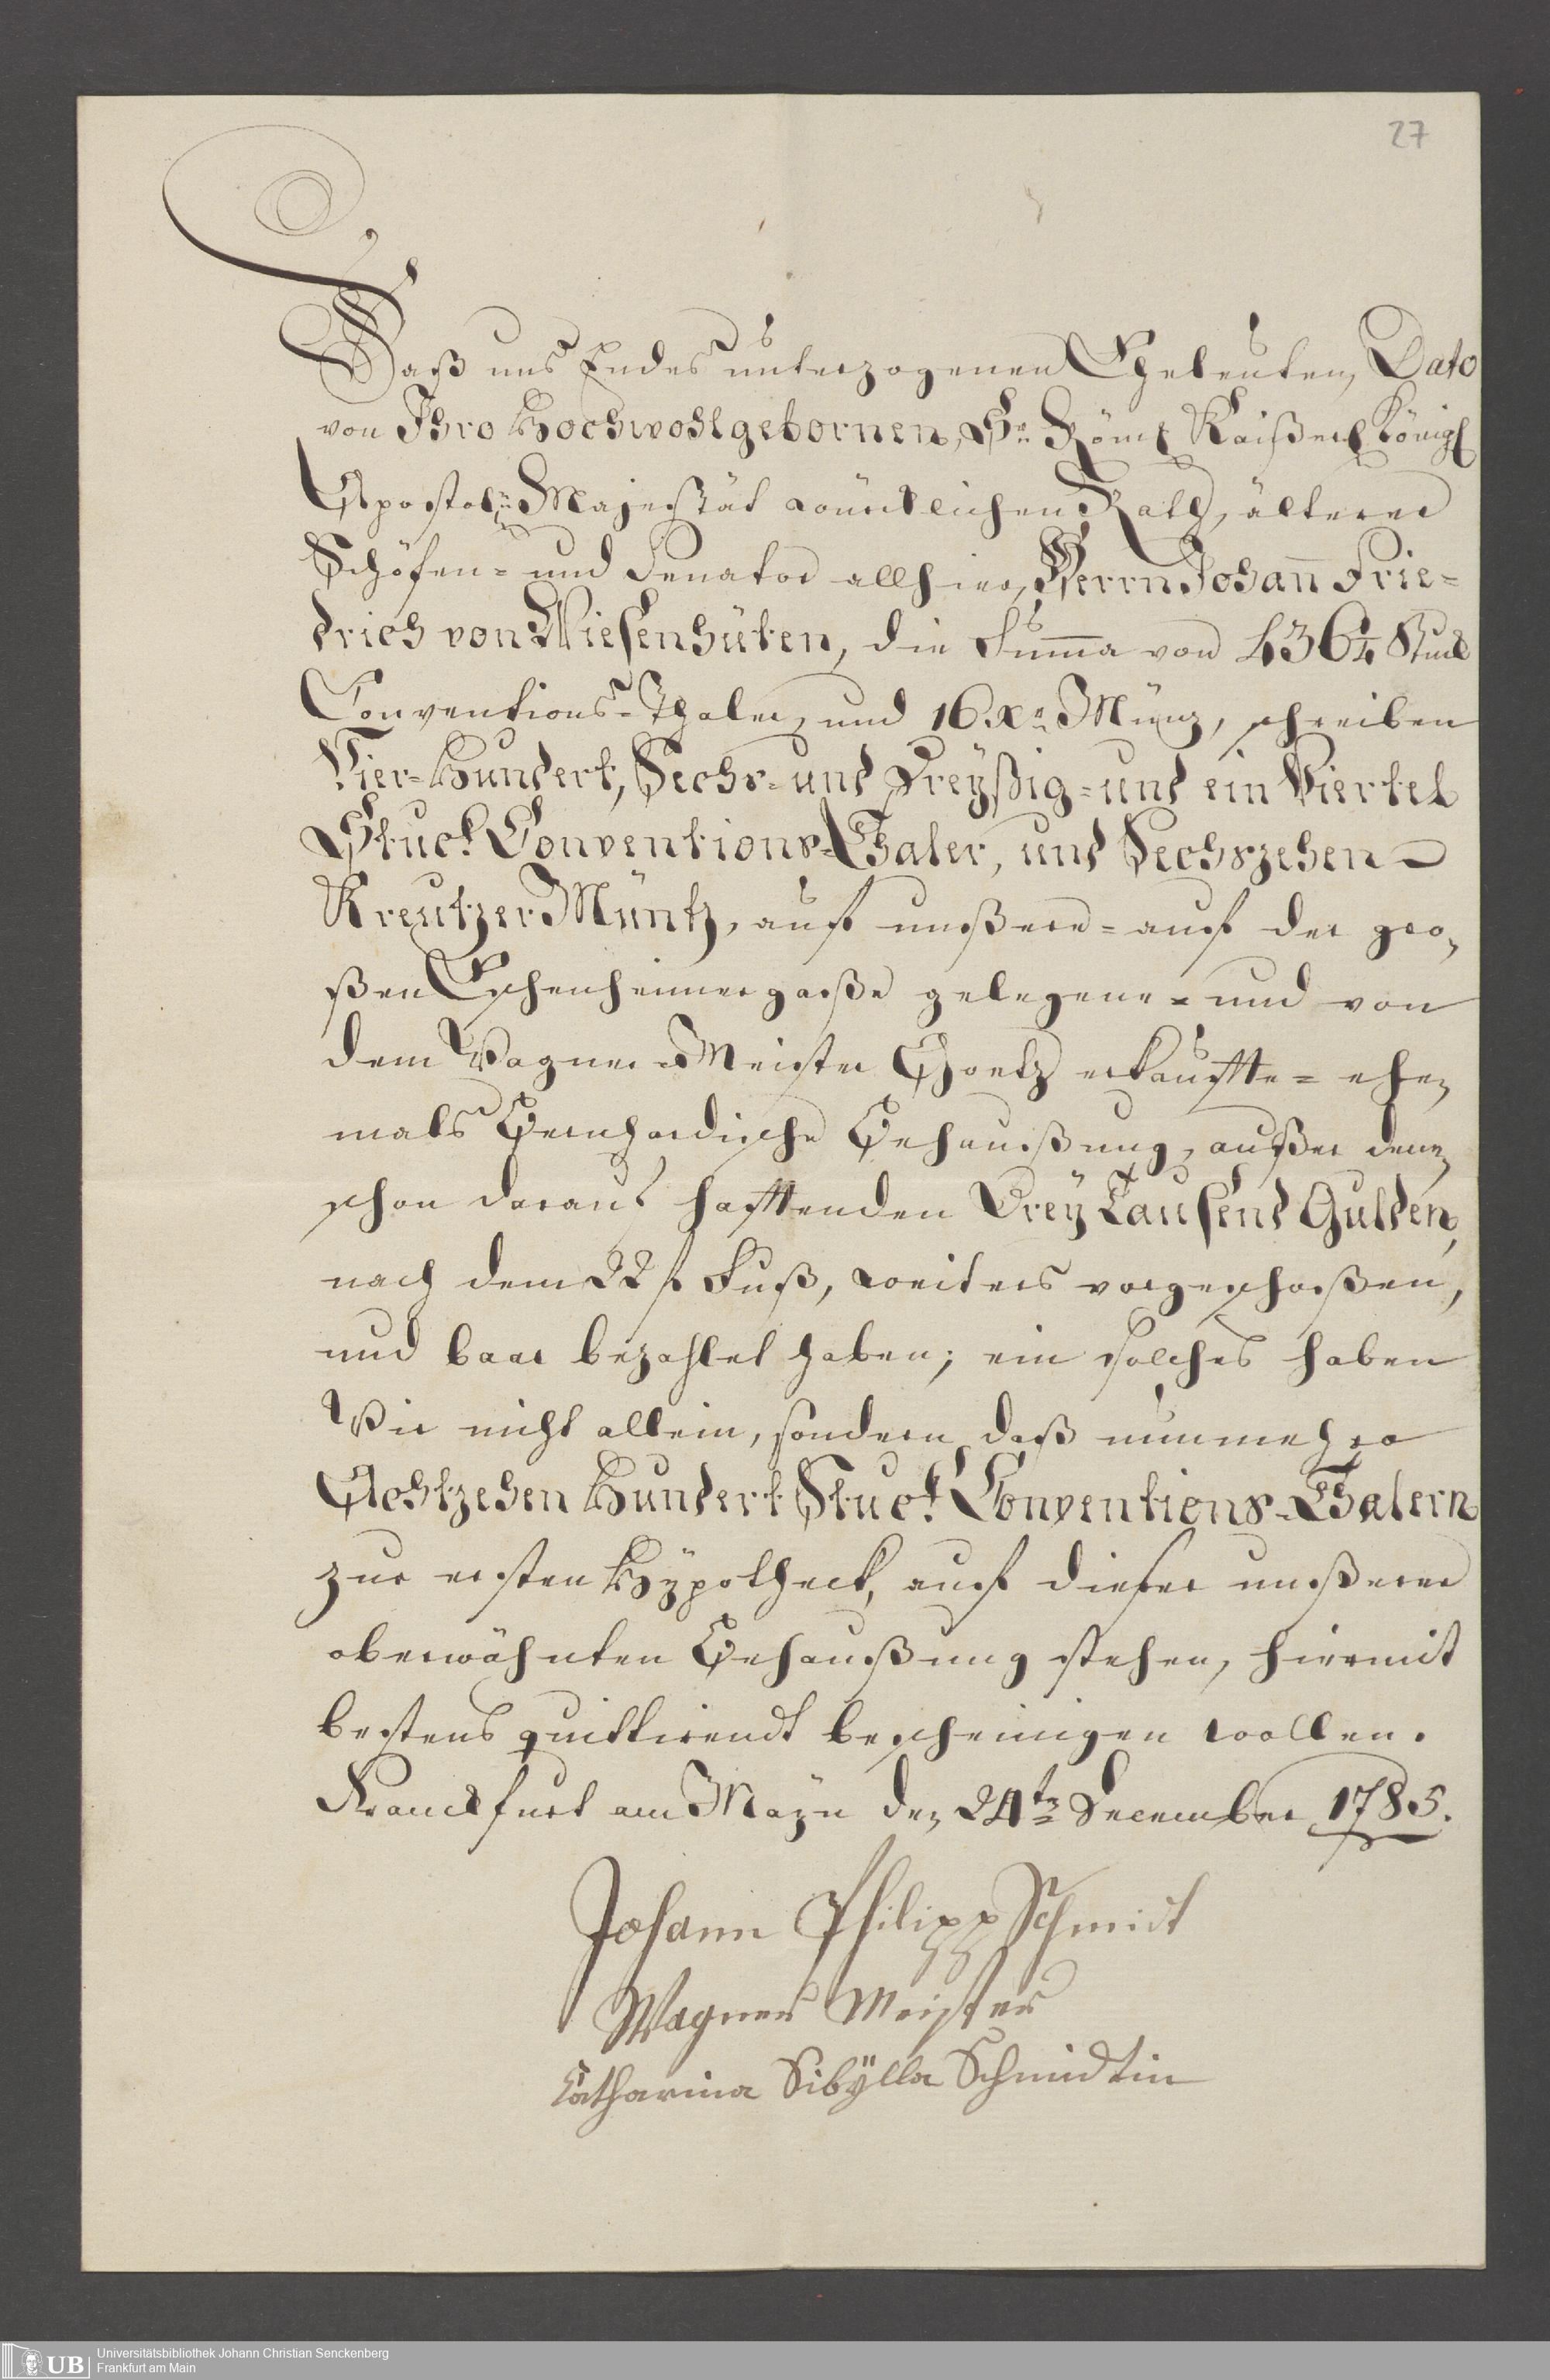 27
Daß uns Endes unterzogenen Eheleuten, Dato
von Ihro Hochwohlgebornen, Sr. Römi. Kaißerl. Königl.
Apostol. Majestät würcklichen Rath, älterer
Schöfen= und Senator allhier, Herrn Johann Frie=
drich von Wiesenhüten, die Summa von 436¼ Stuck
Conventions=Thaler, und 16. Xr. Müntz, schreiben
Vier=Hundert, Sechs= und Dreyßig= und ein Viertel
Stuck Conventions=Thaler, und Sechszehen
Kreutzer Müntz, auf unßere= auf der gro,
ßen Eschenheimergaße gelegene= und von
dem Wagner Meister Goetz erkauffte= ehe,
mals Gernhardische Behaußung, außer denen
schon daraus hafftenden Drey Tausend Gulden,
nach dem 22 f. Fuß, weiters vorgeschoßen,
und baar bezahlet haben; ein solches haben
Wir nicht allein, sondern daß nunmehro
Achtzehen Hundert Stuck Conventions=Thalern
zur ersten Hÿpotheck, auf dieser unßerer
oberwähnten Behaußung stehen, hiermit
bestens quittirendt bescheinigen wollen.
Franckfurt am Mayn den 24ten December 1785.
Johann Philipp Schmidt
Wagner Meister
Catharina Sibÿlla Schmidtin
UB Universitätsbibliothek Johann Christian Senckenberg
Frankfurt am Main